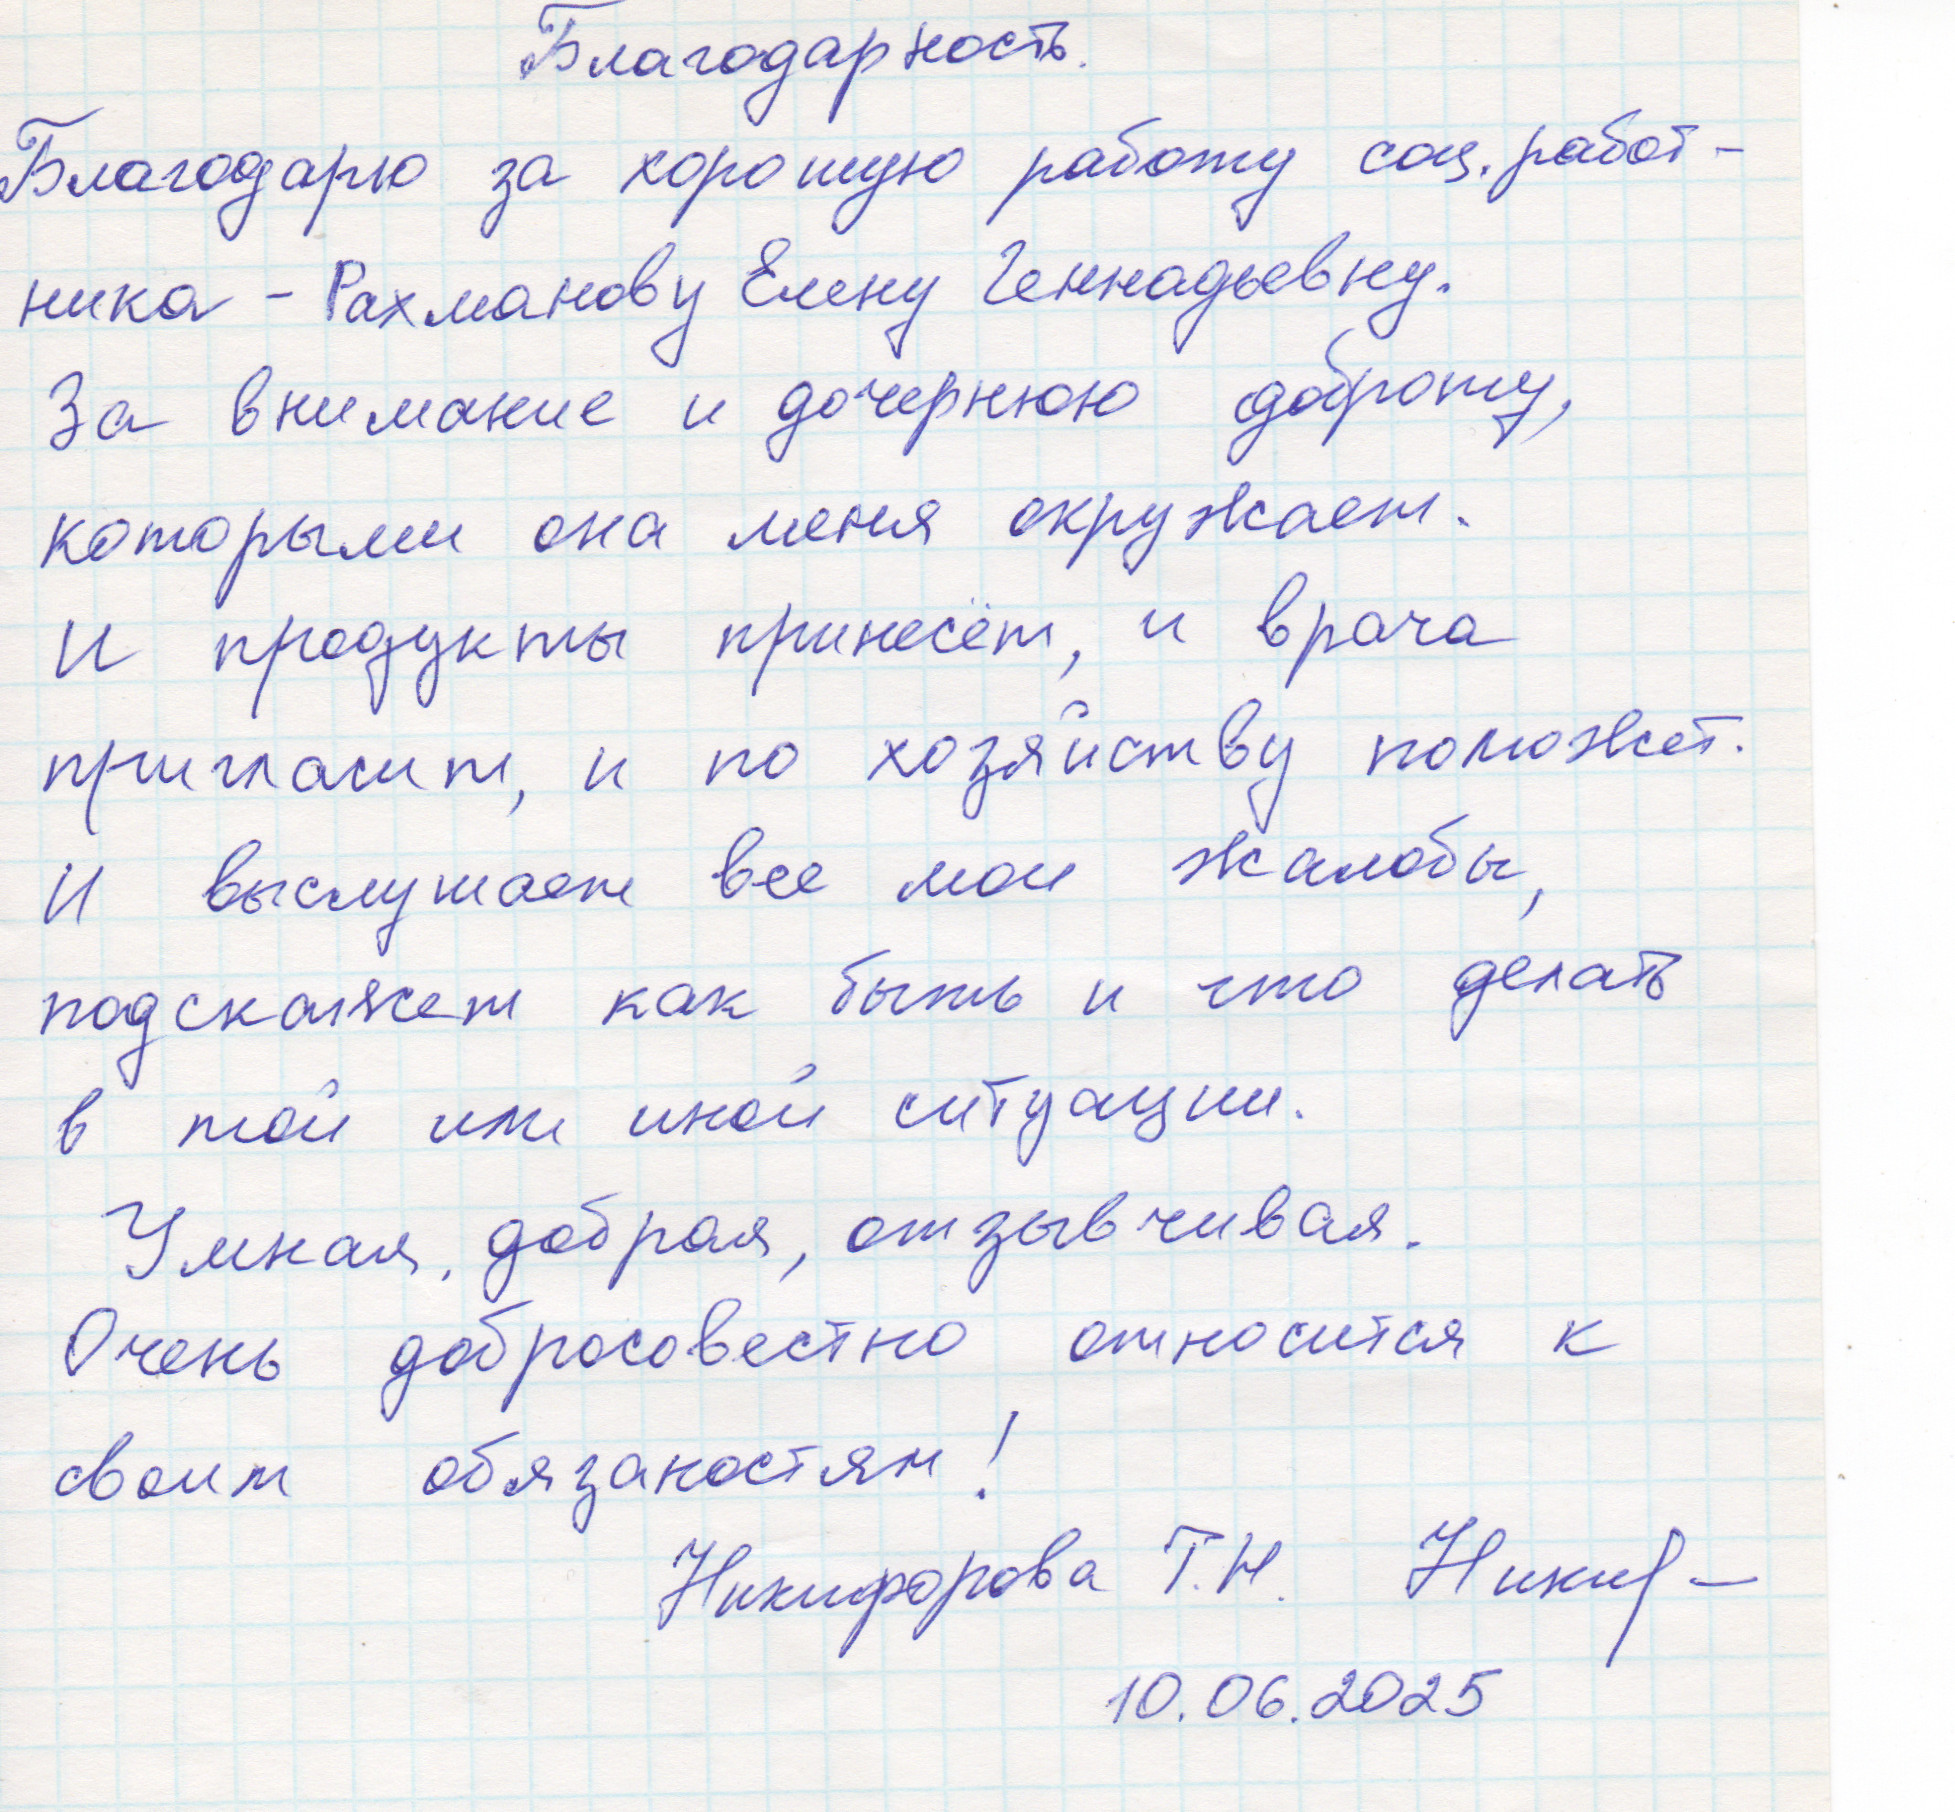 Благодарность.
Благодарю за хорошую работу соц. работ-
ника - Рахманову Елену Геннадьевну.
За внимание и дочернюю доброту,
которыми она меня окружает.
И продукты принесёт, и врача
пригласит, и по хозяйству поможет.
И выслушает все мои жалобы,
подскажет как быть и что делать
в той или иной ситуации.
Умная, добрая, отзывчивая.
Очень добросовестно относится к
своим обязаностям!
Никифорова Т.Н.
10.06.2025